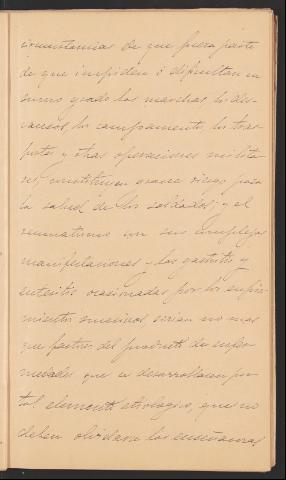 circunstancias de que fuera parte
de que impiden ó dificultan en
sumo grado las marchas, los des-
cansos, los campamentos, los trans-
portes y otras operaciones milita-
res, constituyen grave riesgo para
la salud de los soldados; y el
reumatismo con sus complejas
manifestaciones y las gastritis y
enteritis ocasionadas por los enfria-
mientos serian no mas
que factores del producto de enfer-
medades que se desarrollasen por
tal elemento etiologico, pues no
deben olvidarse las enseñanzas